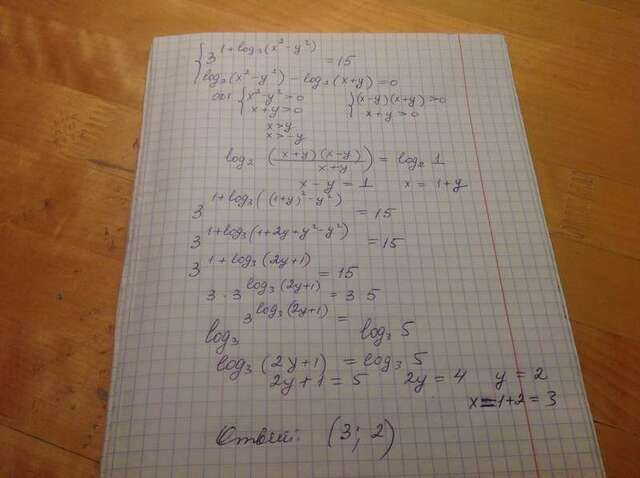 3^{1+log₃(x²-y²)} = 15
log₂(x²-y²) - log₂(x+y) = 0
{x²-y²>0 {(x-y)(x+y)>0
x+y>0 x+y>0
x>y
x>-y
log₂ ((x+y)(x-y)/(x+y)) = log₂ 1
x-y = 1 x = 1+y
3^{1+log₃((1+y)²-y²)} = 15
3^{1+log₃(1+2y+y²-y²)} = 15
3^{1+log₃(2y+1)} = 15
3·3^{log₃(2y+1)} = 3·5
log₃ 3^{log₃(2y+1)} = log₃ 5
log₃(2y+1) = log₃ 5
2y+1 = 5 2y = 4 y = 2
x = 1+2 = 3
Ответ: (3; 2)